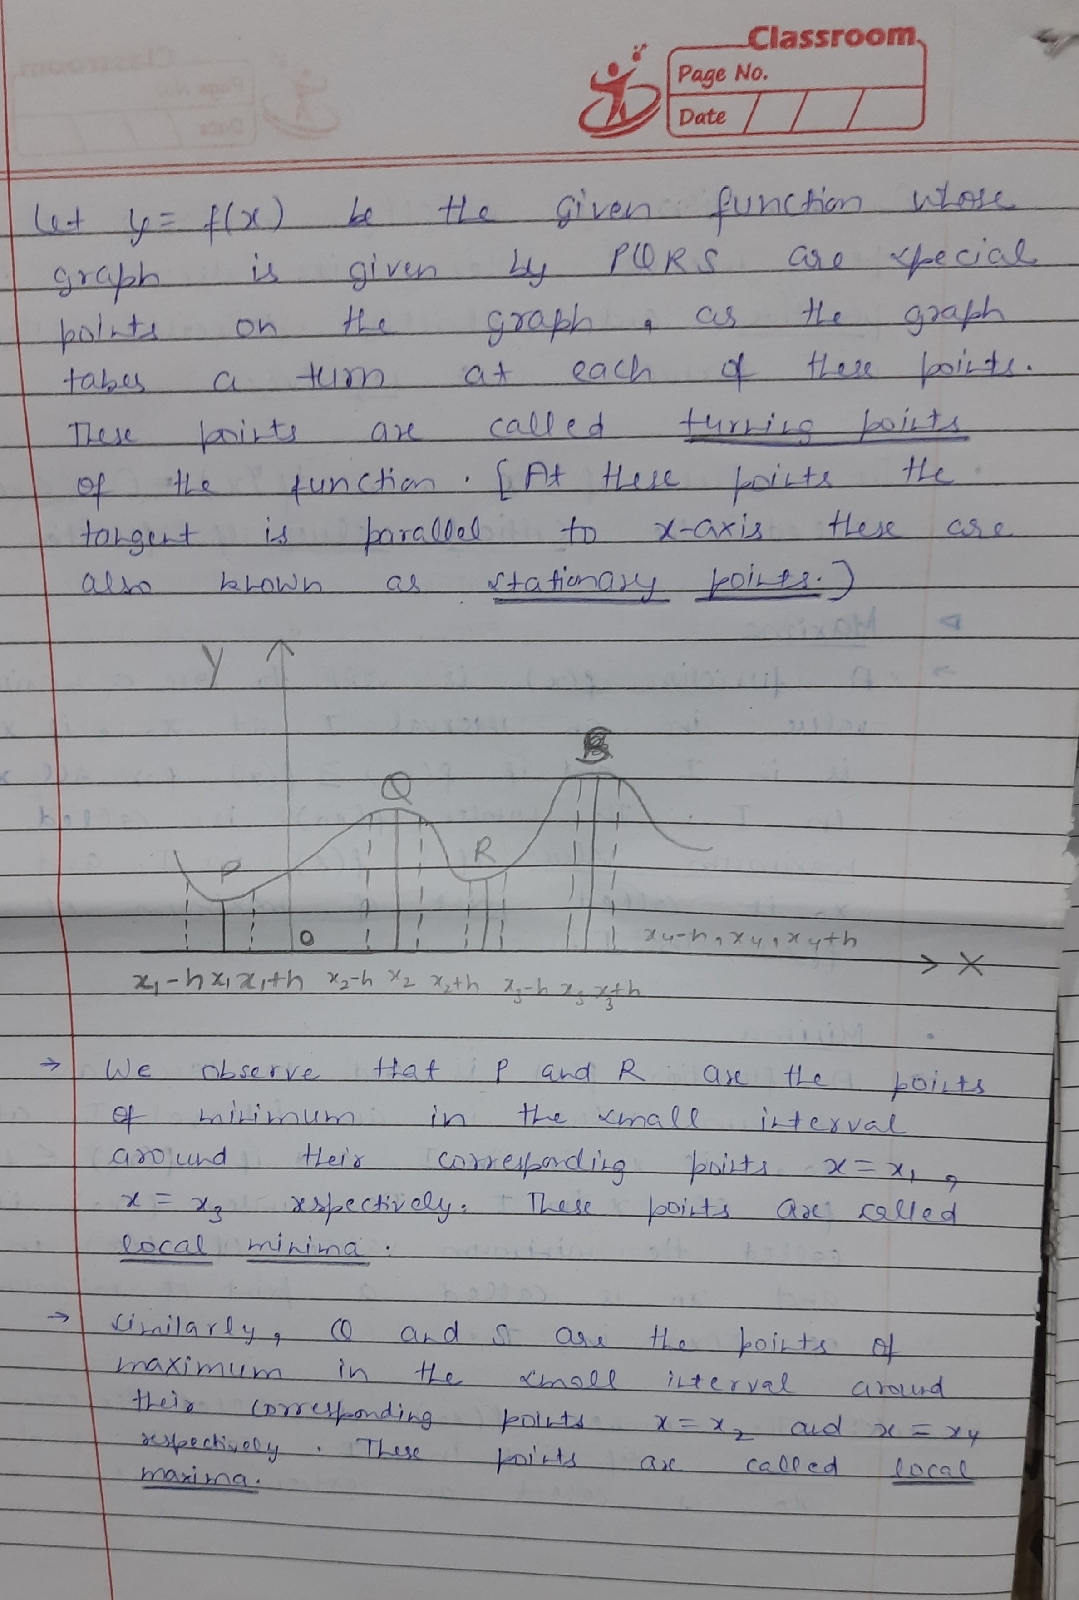 Classroom
Page No.
Date / / /
Let y = f(x) be the given function whose
graph is given by PQRS are special
points on the graph, as the graph
takes a turn at each of these points.
These points are called turning points
of the function. [At these points the
tangent is parallel to x-axis these are
also known as stationary points.)
Y
Q
P
R
O
x4-h, x4, x4+h
X
x1-h x1 x1+h x2-h x2 x2+h x3-h x3 x3+h
→ We observe that P and R are the points
of minimum in the small interval
around their corresponding points x = x1,
x = x3 respectively. These points are called
local minima.
→ Similarly, Q and S are the points of
maximum in the small interval around
their corresponding points x = x2 and x = x4
respectively. These points are called local
maxima.